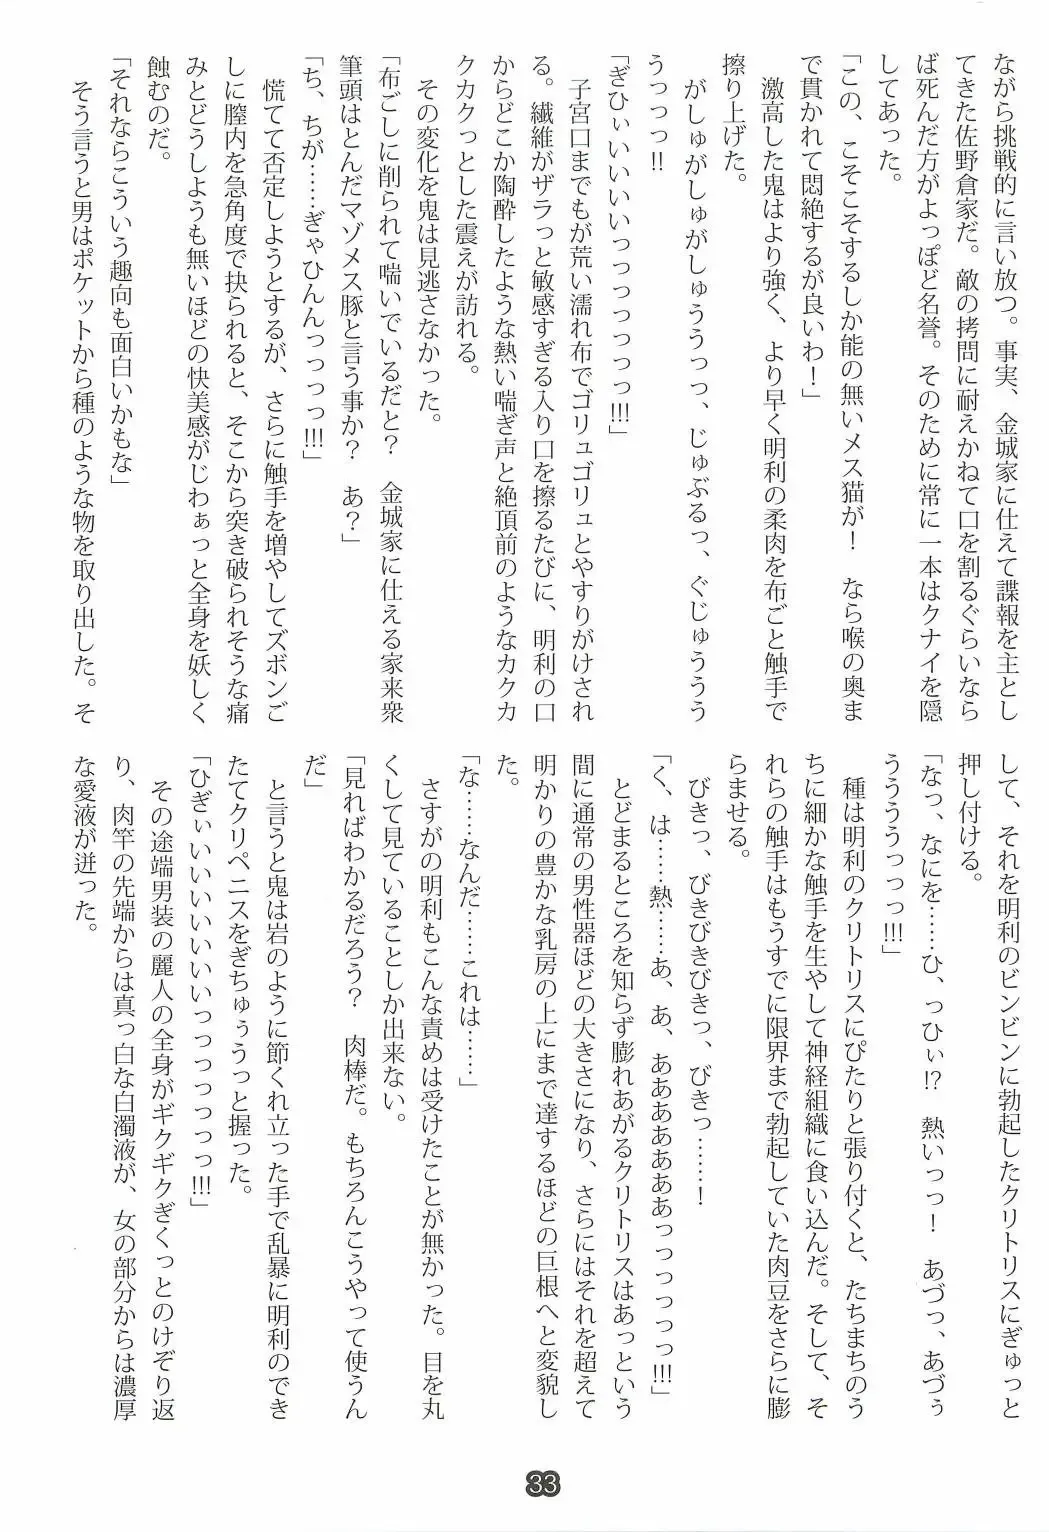 ながら挑戦的に言い放つ。事実、金城家に仕えて諜報を主とし
てきた佐野倉家だ。敵の拷問に耐えかねて口を割るぐらいなら
ば死んだ方がよっぽど名誉。そのために常に一本はクナイを隠
してあった。
「この、こそこそするしか能の無いメス猫が！　なら喉の奥ま
で貫かれて悶絶するが良いわ！」
　激高した鬼はより強く、より早く明利の柔肉を布ごと触手で
擦り上げた。
　がしゅがしゅがしゅううっっ、じゅぶるっ、ぐじゅううう
うっっっ!!
「ぎひぃいいいいっっっっっっっ!!!」
　子宮口までもが荒い濡れ布でゴリュゴリュとやすりがけされ
る。繊維がザラっと敏感すぎる入り口を擦るたびに、明利の口
からどこか陶酔したような熱い喘ぎ声と絶頂前のようなカクカ
クカクっとした震えが訪れる。
　その変化を鬼は見逃さなかった。
「布ごしに削られて喘いでいるだと？　金城家に仕える家来衆
筆頭はとんだマゾメス豚と言う事か？　あ？」
「ち、ちが……ぎゃひんんっっっっ!!!」
　慌てて否定しようとするが、さらに触手を増やしてズボンご
しに膣内を急角度で抉られると、そこから突き破られそうな痛
みとどうしようも無いほどの快美感がじわぁっと全身を妖しく
蝕むのだ。
「それならこういう趣向も面白いかもな」
　そう言うと男はポケットから種のような物を取り出した。そ
して、それを明利のビンビンに勃起したクリトリスにぎゅっと
押し付ける。
「なっ、なにを……ひ、っひぃ!?　熱いっっ！　あづっ、あづぅ
ううううっっっ!!!」
　種は明利のクリトリスにぴたりと張り付くと、たちまちのう
ちに細かな触手を生やして神経組織に食い込んだ。そして、そ
れらの触手はもうすでに限界まで勃起していた肉豆をさらに膨
らませる。
　びきっ、びきびきびきっ、びきっ……！
「く、は……熱……あ、あ、ああああああああっっっっっっ!!!」
　とどまるところを知らず膨れあがるクリトリスはあっという
間に通常の男性器ほどの大きさになり、さらにはそれを超えて
明かりの豊かな乳房の上にまで達するほどの巨根へと変貌し
た。
「な……なんだ……これは……」
　さすがの明利もこんな責めは受けたことが無かった。目を丸
くして見ていることしか出来ない。
「見ればわかるだろう？　肉棒だ。もちろんこうやって使うん
だ」
　と言うと鬼は岩のように節くれ立った手で乱暴に明利のでき
たてクリペニスをぎちゅぅうっと握った。
「ひぎぃいいいいいいいっっっっっっっ!!!」
　その途端男装の麗人の全身がギクギクぎくっとのけぞり返
り、肉竿の先端からは真っ白な白濁液が、女の部分からは濃厚
な愛液が迸った。
33